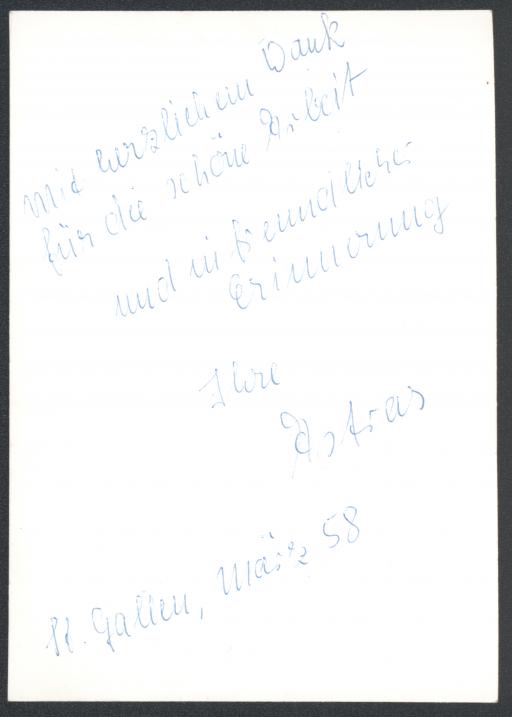 Mit herzlichem Dank
für die schöne Arbeit
und in freundlicher
Erinnerung
Ihre
Astras
St. Gallen, März 58